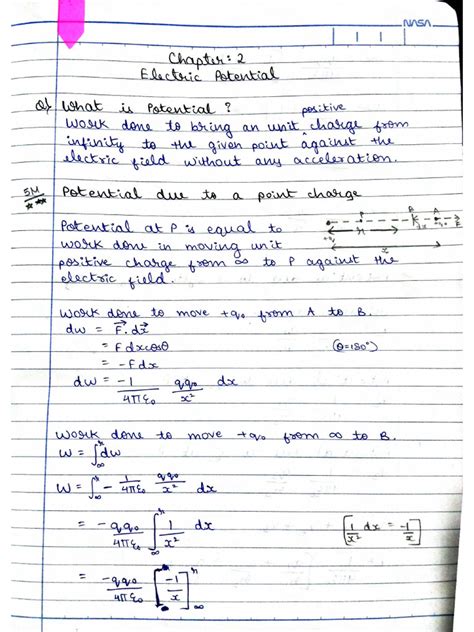 NASA
Chapter: 2
Electric Potential
Q) What is Potential ?
positive
Work done to bring an unit charge from
infinity to the given point against the
electric field without any acceleration.
5M Potential due to a point charge
Potential at P is equal to
work done in moving unit
positive charge from ∞ to P against the
electric field.
P B A
+q dx +q₀
r
x
Work done to move +q₀ from A to B.
dw = F⃗.dx⃗
= Fdxcosθ (θ=180°)
= -Fdx
dw = -1/4πε₀ qq₀/x² dx
Work done to move +q₀ from ∞ to B.
W = ∫∞^r dw
W = ∫∞^r - 1/4πε₀ qq₀/x² dx
= -qq₀/4πε₀ ∫∞^r 1/x² dx [1/x² dx = -1/x]
= -qq₀/4πε₀ [-1/x]∞^r